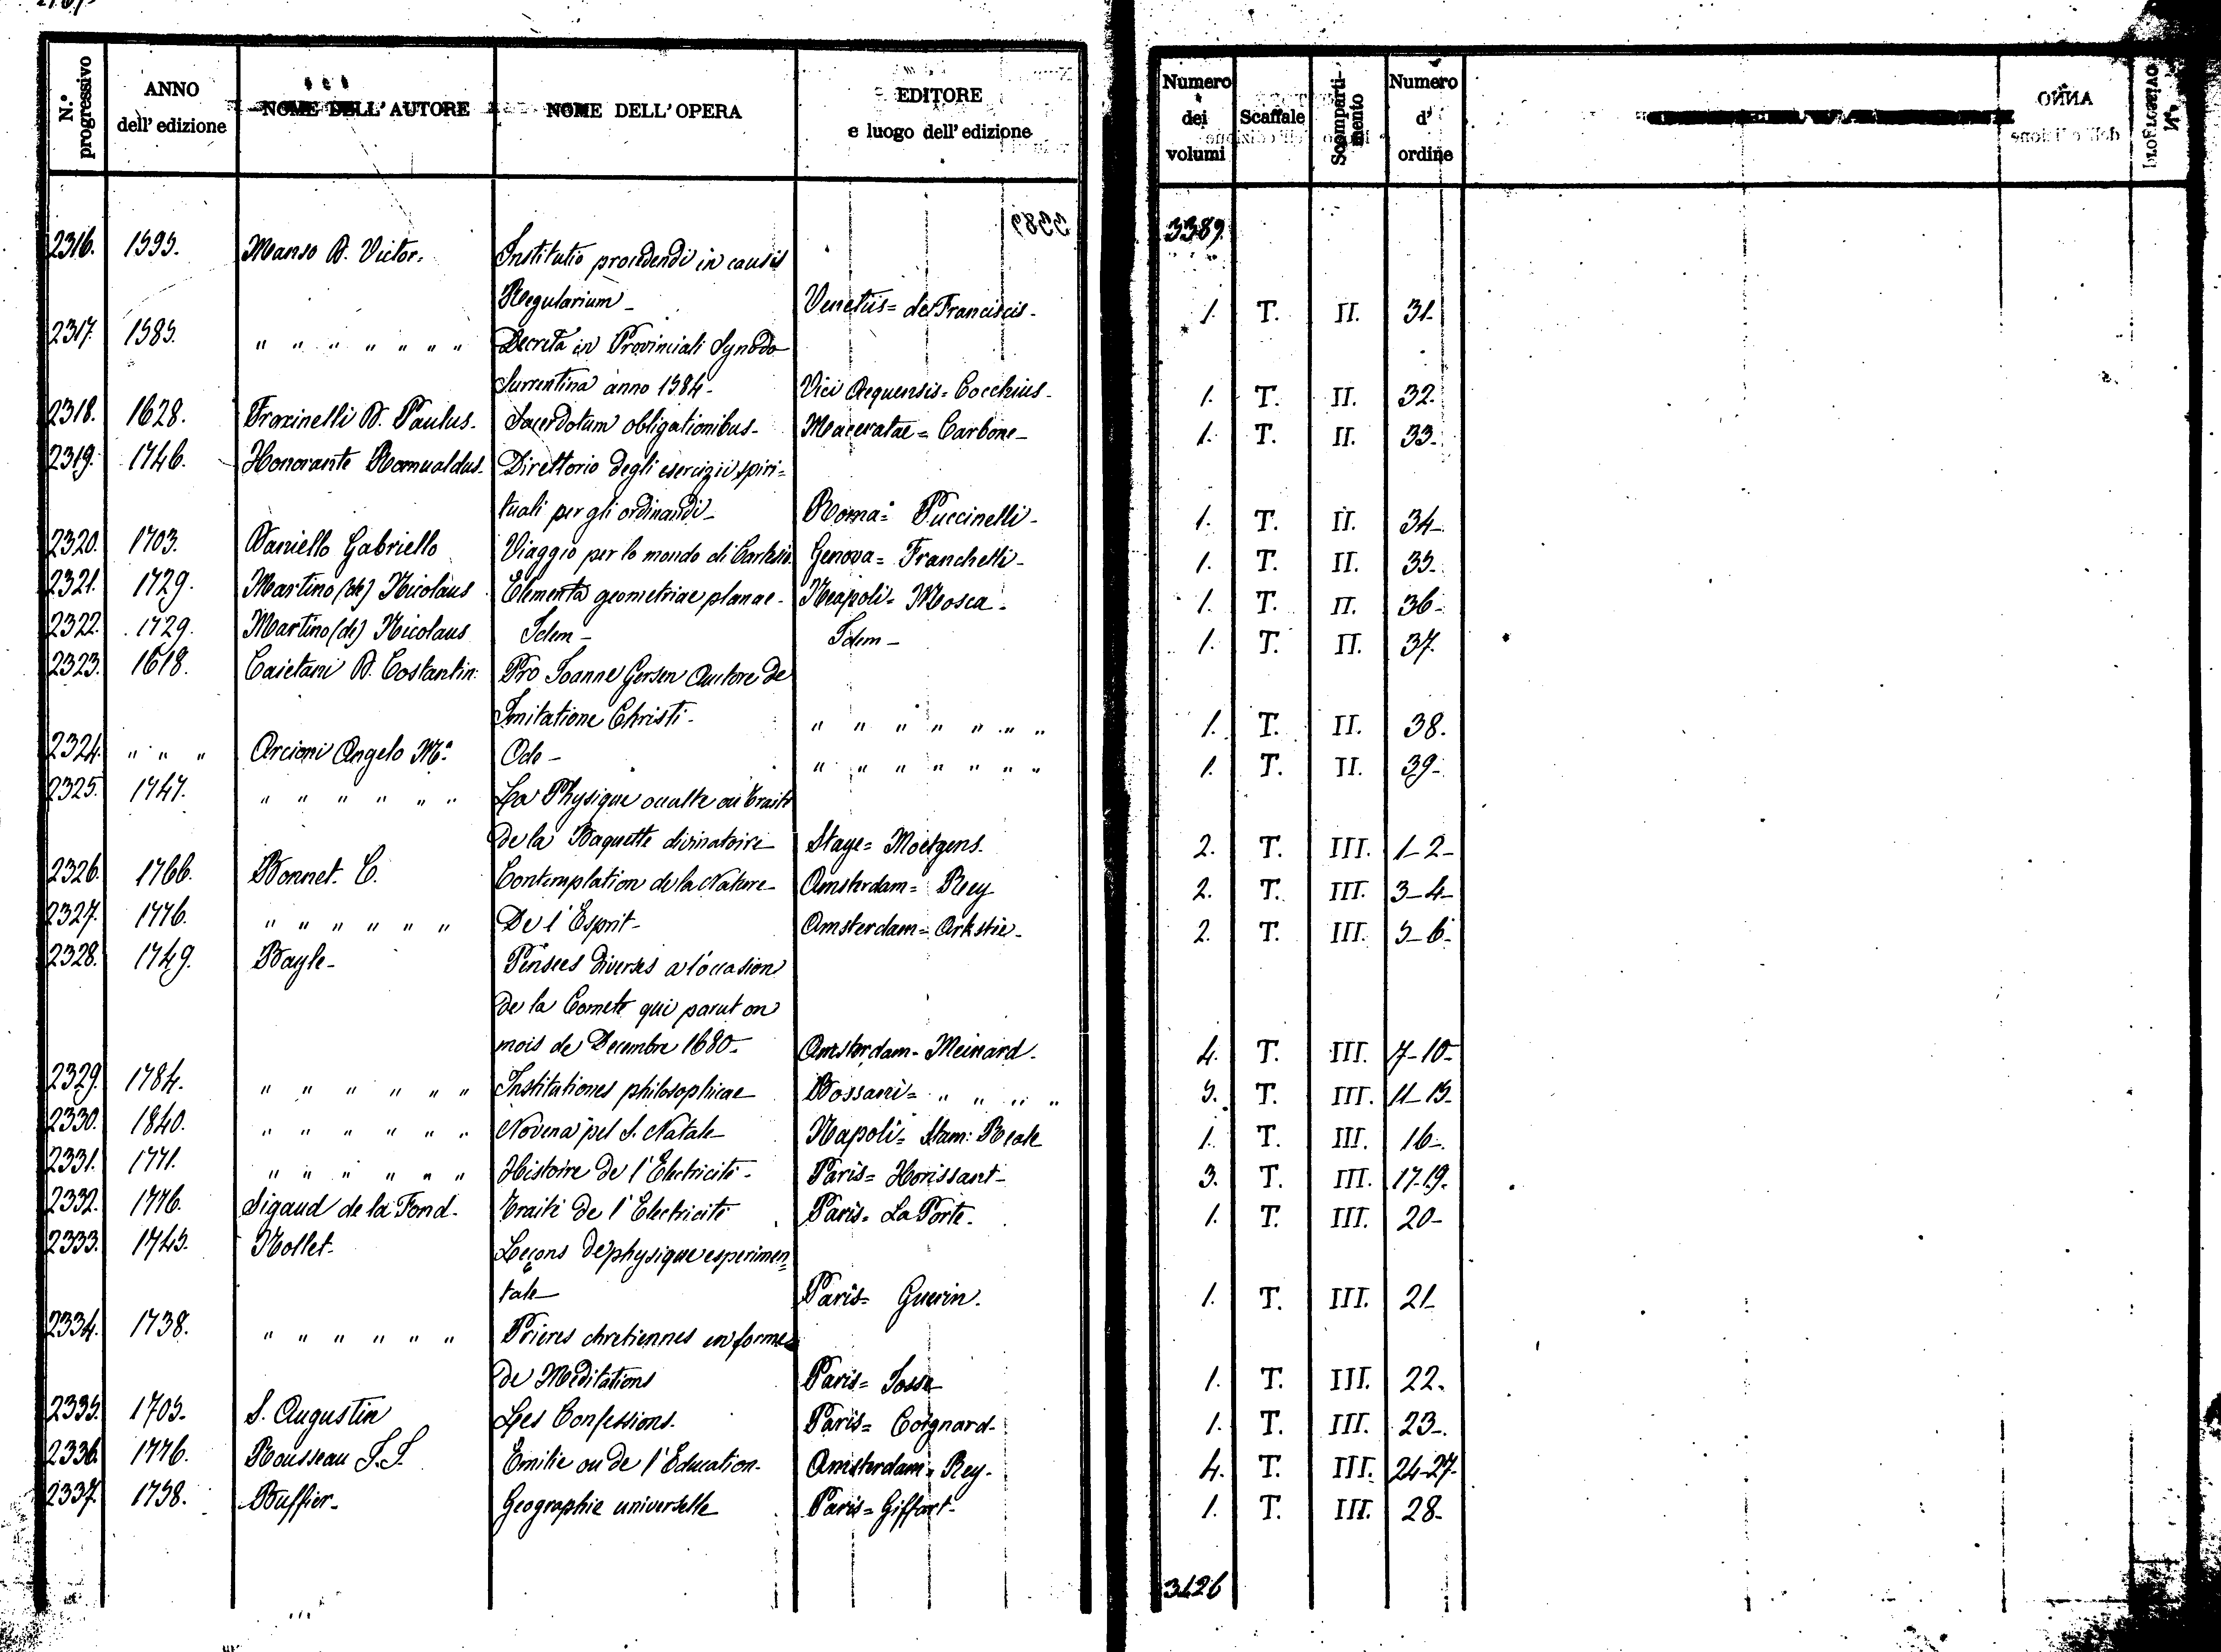 N.º progressivo
ANNO dell' edizione
NOME DELL' AUTORE
NOME DELL' OPERA
EDITORE e luogo dell' edizione
Numero dei volumi
Scaffale
Scompartimento
Numero d' ordine
3389.
2316. 1595. Manso D. Victor. Institutio procedendi in causis
Regularium - Venetiis = de Franciscis - 1. T. II. 31.
2317. 1585. " " " " " " " Decreta in Provinciali Synodo
Surrentina anno 1584 - Vici Aequensis = Cocchius - 1. T. II. 32.
2318. 1628. Froncinelli D. Paulus. Sacerdotum obligationibus - Maceratae = Carbone - 1. T. II. 33.
2319. 1746. Honorante Romualdus. Direttorio degli esercizii spiri=
tuali per gli ordinandi - Roma = Puccinelli - 1. T. II. 34-
2320. 1703. Daniello Gabriello Viaggio per lo mondo di Cartesio Genova = Franchelli - 1. T. II. 35-
2321. 1729. Martino (de) Nicolaus Elementa geometriae planae - Neapoli = Mosca - 1. T. II. 36-
2322. 1729. Martino (de) Nicolaus Idem - Idem - 1. T. II. 37.
2323. 1618. Caietani D. Costantin: Pro Joanne Gersen Autore de
Imitatione Christi - " " " " " " " 1. T. II. 38.
2324. " " " Arcioni Angelo Mª Ode - " " " " " " " 1. T. II. 39-
2325. 1747. " " " " " " La Physique occulte ou traité
de la Baguette divinatoire Haye = Moetgens. 2. T. III. 1-2-
2326. 1766. Bonnet. C. Contemplation de la Nature - Amsterdam = Rey 2. T. III. 3-4-
2327. 1776. " " " " " " De l'Esprit - Amsterdam = Arkstée - 2. T. III. 5-6-
2328. 1749. Bayle - Pensees diverses a l'occasion
de la Comete qui parut on
mois de Decembre 1680 - Amsterdam - Meinard - 4. T. III. 7-10-
2329. 1784. " " " " " " Institutiones philosophicae Bossani = " " " " 5. T. III. 11-15-
2330. 1840. " " " " " " Novena pel S. Natale Napoli = Stam: Reale 1. T. III. 16-
2331. 1771. " " " " " " Histoire de l'Electricité - Paris = Horissant - 3. T. III. 17-19.
2332. 1776. Sigaud de la Fond - Traité de l'Electricité Paris = La Porte - 1. T. III. 20-
2333. 1745. Nollet - Leçons de physique esperimen=
tale Paris = Guerin. 1. T. III. 21-
2334. 1738. " " " " " " Prieres chretiennes en forme
de Méditations Paris = Josse 1. T. III. 22.
2335. 1705. S. Augustin Les Confessions. Paris = Coignard - 1. T. III. 23-
2336. 1776. Rousseau J. J. Emilie ou de l'Education - Amsterdam = Rey - 4. T. III. 24-27-
2337. 1738. Buffier - Geographie universelle Paris = Giffart - 1. T. III. 28-
3426